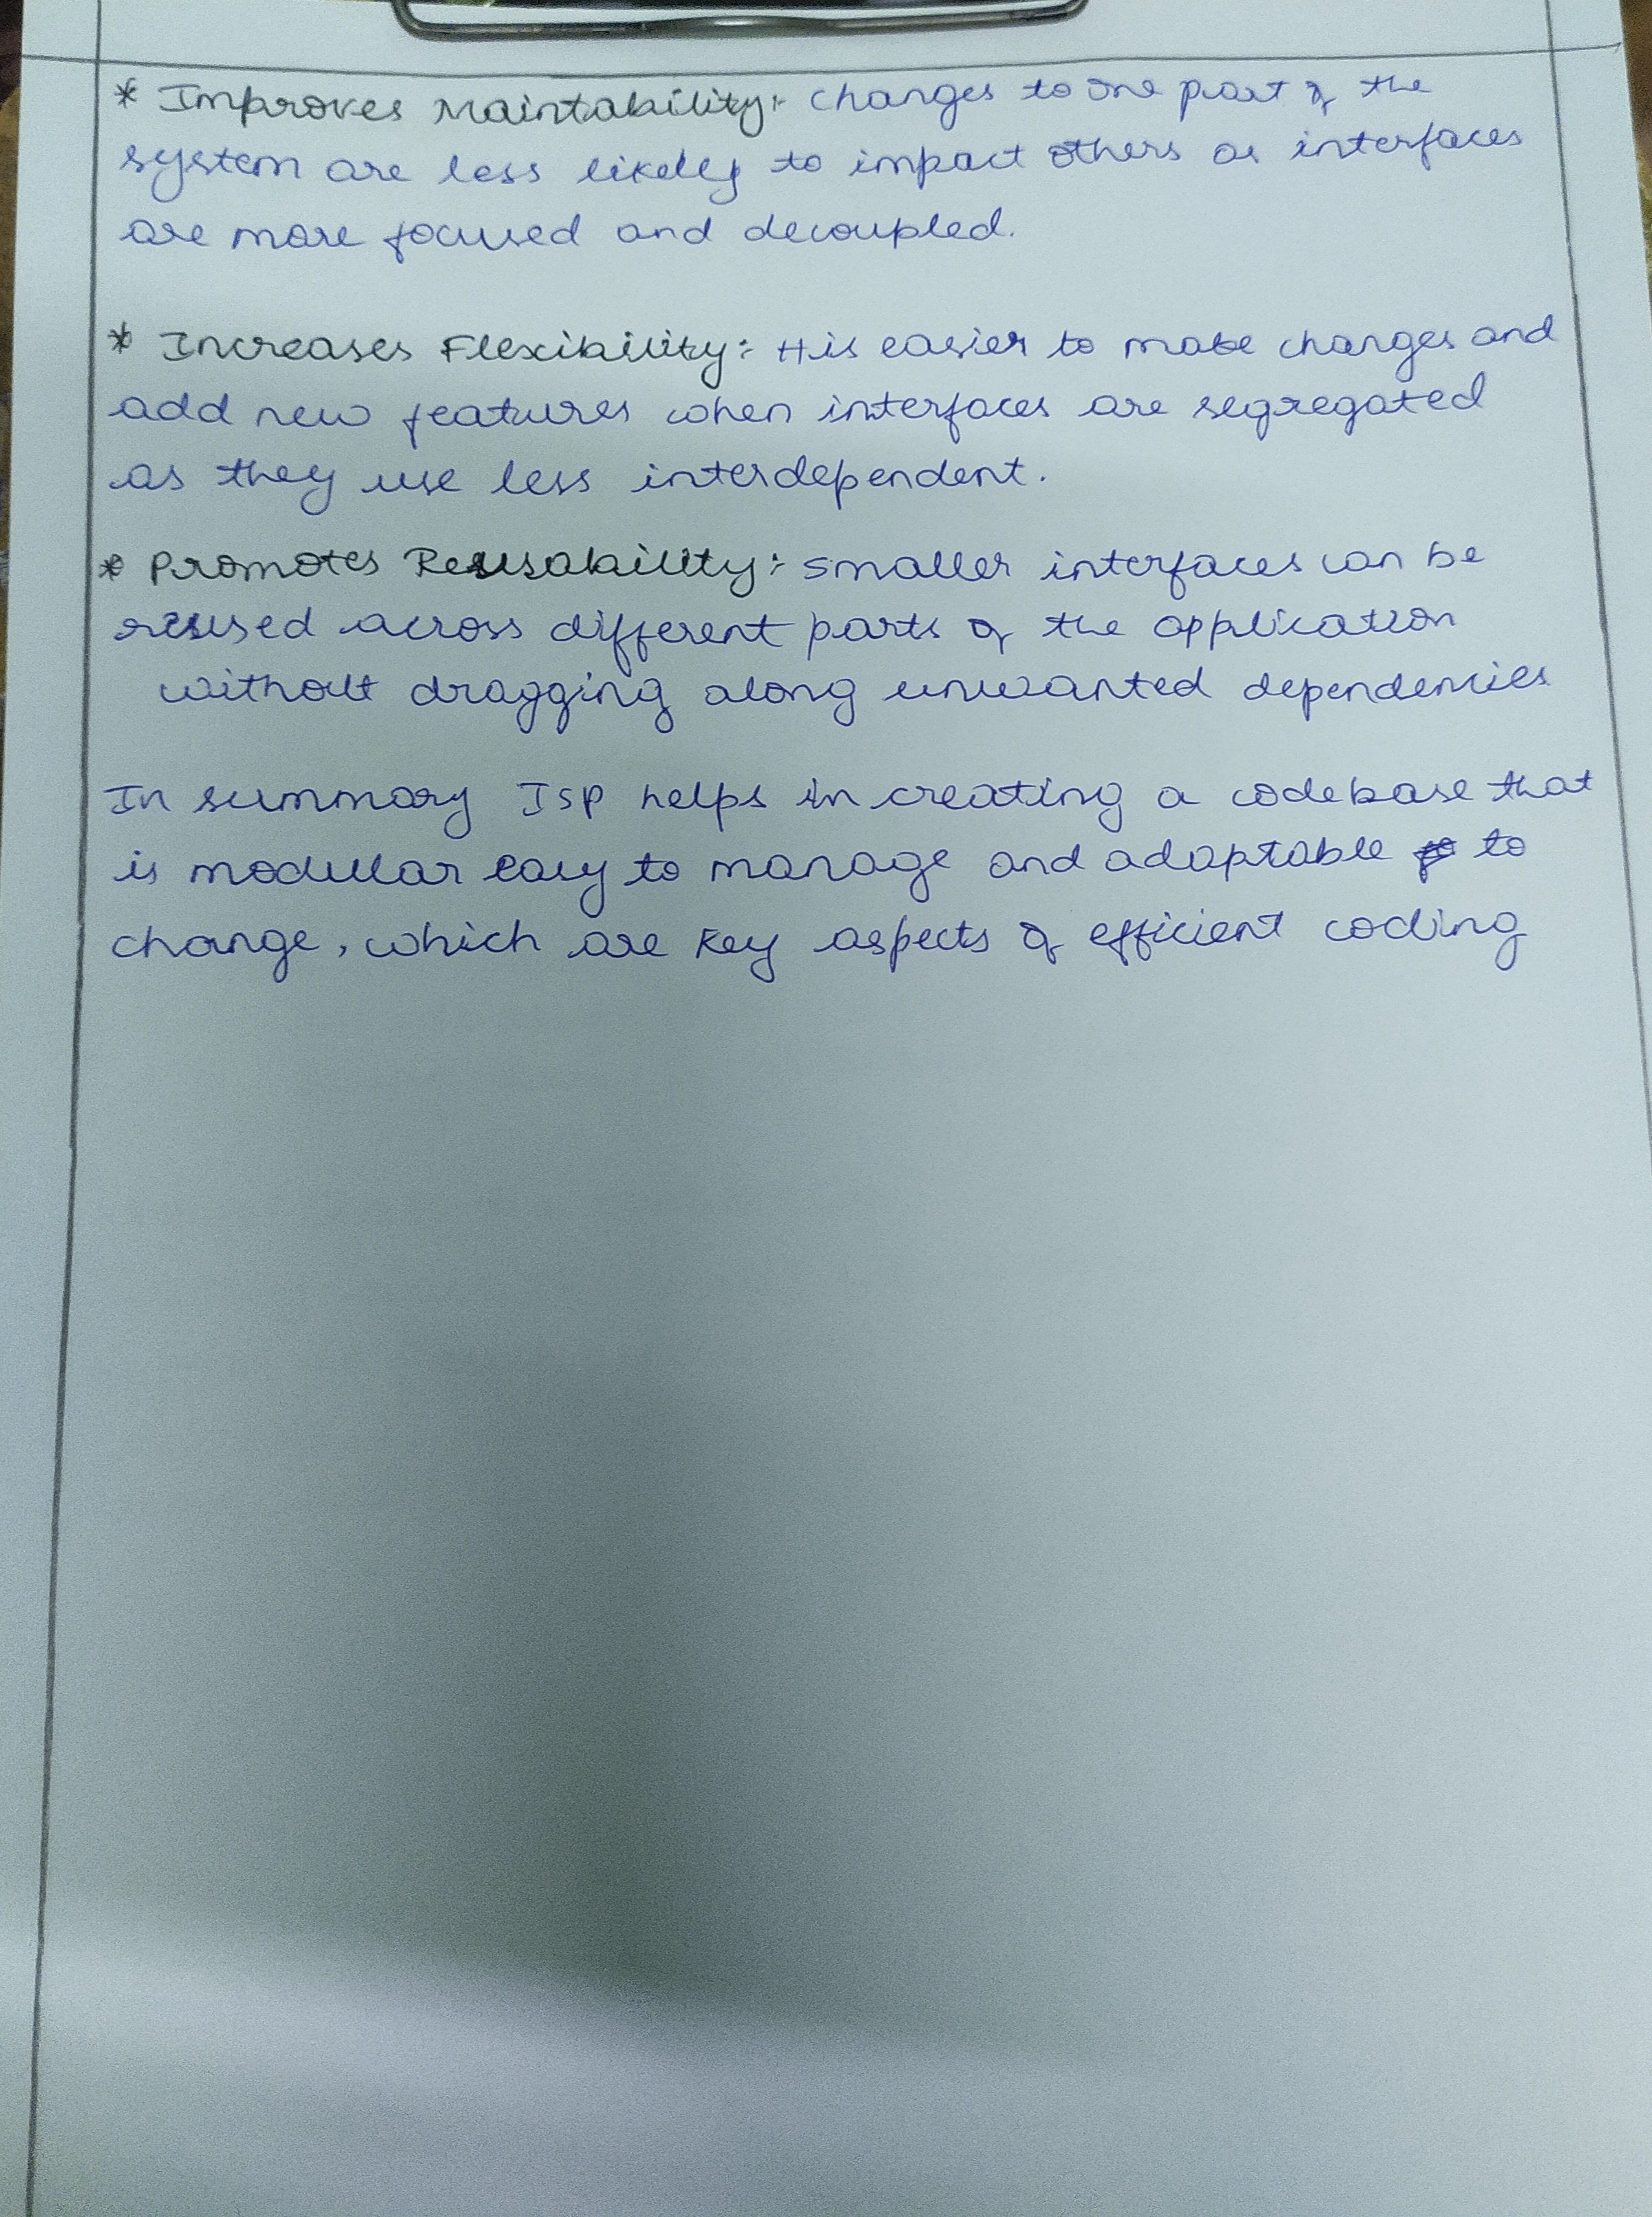 * Improves Maintability: changes to one part of the
system are less likely to impact others as interfaces
are more focused and decoupled.
* Increases Flexibility: It is easier to make changes and
add new features when interfaces are segregated
as they use less interdependent.
* Promotes Reusability: smaller interfaces can be
reused across different parts of the application
without dragging along unwanted dependencies
In summary ISP helps in creating a codebase that
is modular easy to manage and adaptable to
change, which are key aspects of efficient coding